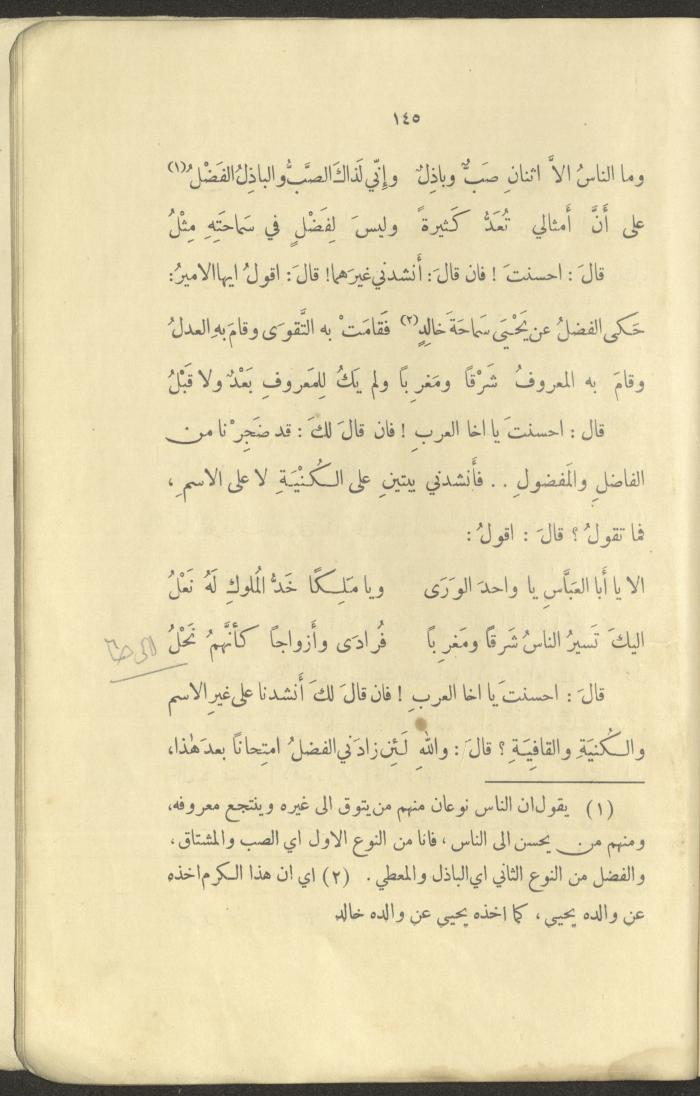 ١٤٥
وما الناسُ الاَّ اثنانِ صَبٌّ وباذِلٌ وإِنّي لَذاكَ الصَّبُّ والباذِلُ الفَضْلُ (١)
على أَنَّ أَمثالي تُعَدُّ كَثيرةً وليسَ لِفَضْلٍ في سَماحَتِهِ مِثْلُ
قالَ : احسنتَ ! فان قالَ : أَنشدني غيرَهما ! قالَ : اقولُ ايها الاميرُ :
حَكى الفضلُ عن يَحْيَى سَماحَةَ خالِدٍ (٢) فَقامَتْ به التَّقوَى وقامَ بهِ العدلُ
وقامَ به المعروفُ شَرْقًا ومَغرِبًا ولم يَكُ لِلمَعروفِ بَعْدٌ ولا قَبْلُ
قال : احسنتَ يا اخا العربِ ! فان قالَ لكَ : قد ضَجِرْنا من
الفاضلِ والمَفضولِ . . فأَنشدني بيتينِ على الكُنْيَةِ لا على الاسمِ ،
فما تقولُ ؟ قالَ : اقولُ :
الا يا أَبا العَبَّاسِ يا واحدَ الوَرَى ويا مَلِكًا خَدُّ المُلوكِ لَهُ نَعْلُ
اليكَ تَسيرُ الناسُ شَرقًا ومَغرِبًا فُرادَى وأَزواجًا كأَنَّهمُ نَحْلُ
قالَ : احسنتَ يا اخا العربِ ! فان قالَ لكَ أَنشدنا على غيرِ الاسم
والكُنيَةِ والقافِيَةِ ؟ قالَ : واللهِ لَئِن زادَني الفضلُ امتِحانًا بعدَ هٰذا،
(١) يقول ان الناس نوعان منهم من يتوق الى غيره وينتجع معروفه،
ومنهم من يحسن الى الناس ، فانا من النوع الاول اي الصب والمشتاق ،
والفضل من النوع الثاني اي الباذل والمعطي . (٢) اي ان هذا الكرم اخذه
عن والده يحيى ، كما اخذه يحيى عن والده خالد